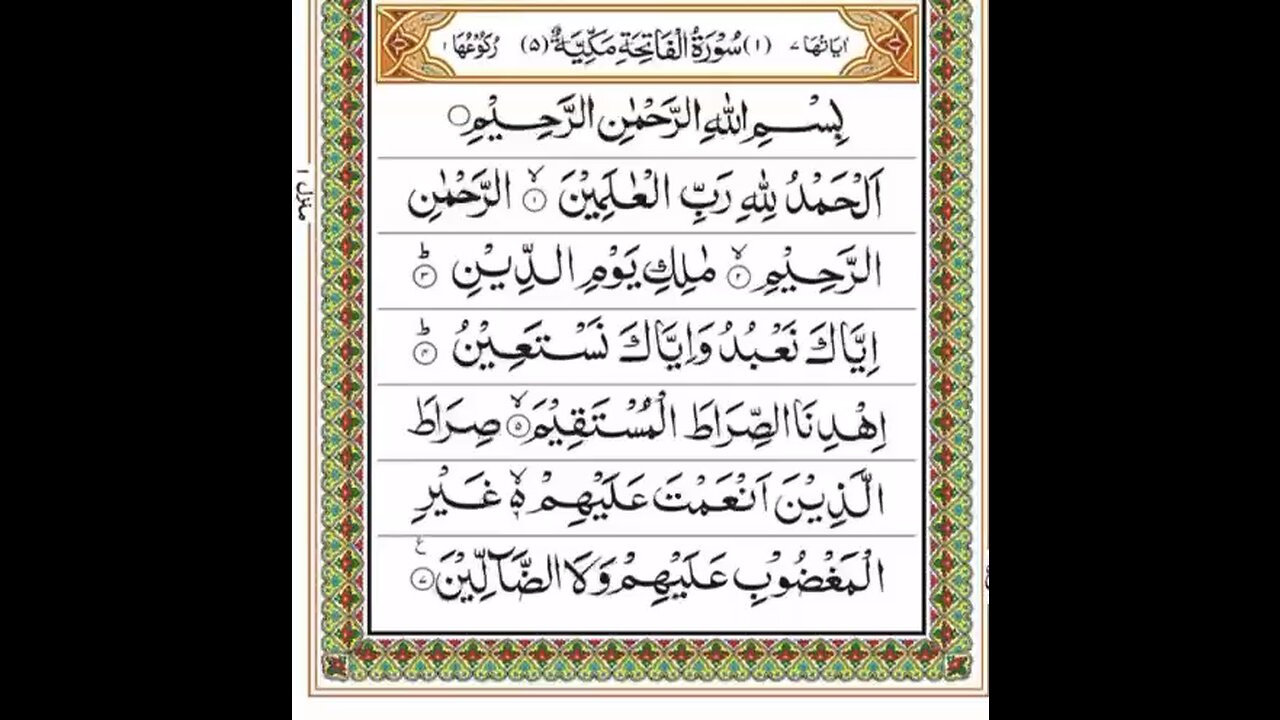 اٰيَاتُهَا ٧ (١) سُوْرَةُ الْفَاتِحَةِ مَكِّيَّةٌ (٥) رُكُوْعُهَا ١
بِسْمِ اللّٰهِ الرَّحْمٰنِ الرَّحِيْمِ ○
اَلْحَمْدُ لِلّٰهِ رَبِّ الْعٰلَمِيْنَ ۙ﴿١﴾ الرَّحْمٰنِ
الرَّحِيْمِ ۙ﴿٢﴾ مٰلِكِ يَوْمِ الدِّيْنِ ؕ﴿٣﴾
اِيَّاكَ نَعْبُدُ وَاِيَّاكَ نَسْتَعِيْنُ ؕ﴿٤﴾
اِهْدِنَا الصِّرَاطَ الْمُسْتَقِيْمَ ۙ﴿٥﴾ صِرَاطَ
الَّذِيْنَ اَنْعَمْتَ عَلَيْهِمْ ۙ۬ۥ غَيْرِ
الْمَغْضُوْبِ عَلَيْهِمْ وَلَا الضَّآلِّيْنَ ﴿٧﴾ ع
منزل ١